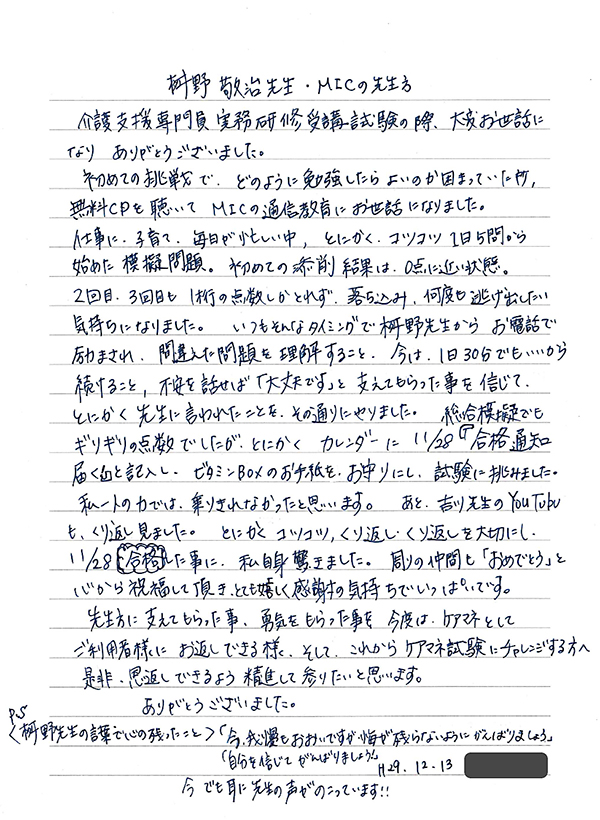 桝野 敬治先生・MICの先生方
介護支援専門員実務研修受講試験の際、大変お世話に
なり ありがとうございました。
初めての挑戦で、どのように勉強したらよいのか困まっていた時、
無料CDを聴いて MICの通信教育にお世話になりました。
仕事に、子育て、毎日が忙しい中、とにかく、コツコツ 1日5問から
始めた 模擬問題。初めての添削 結果は、0点に近い状態。
2回目、3回目も 1桁の点数しかとれず、落ち込み、何度も逃げ出したい
気持ちになりました。いつもそんなタイミングで 桝野先生から お電話で
励まされ、間違えた問題を理解すること、今は、1日30分でもいいから
続けること、不安を話せば「大丈夫です」と 支えてもらった事を信じて、
とにかく 先生に言われたことを、その通りにやりました。総合模擬でも
ギリギリの点数でしたが、とにかく カレンダーに 11/28『合格通知
届く』と記入し、ビタミンBOXのお手紙を、お守りにし、試験に挑みました。
私一人の力では、乗りきれなかったと思います。あと、吉川先生のYouTube
も、くり返し見ました。とにかく コツコツ、くり返し・くり返しを大切にし、
11/28 合格した事に、私自身 驚きました。周りの仲間も「おめでとう」と
心から祝福して頂き、とても嬉しく感謝の気持ちでいっぱいです。
先生方に支えてもらった事、勇気をもらった事を 今度は、ケアマネとして
ご利用者様に お返しできる様、そして、これから ケアマネ試験にチャレンジする方へ
是非、恩返しできるよう 精進して参りたいと思います。
ありがとうございました。
PS
〈桝野先生の言葉で心の残ったこと〉「今、我慢もおおいですが悔が残らないように がんばりましょう」
「自分を信じて がんばりましょう!」
H29.12.13
今でも耳に先生の声がのこっています!!